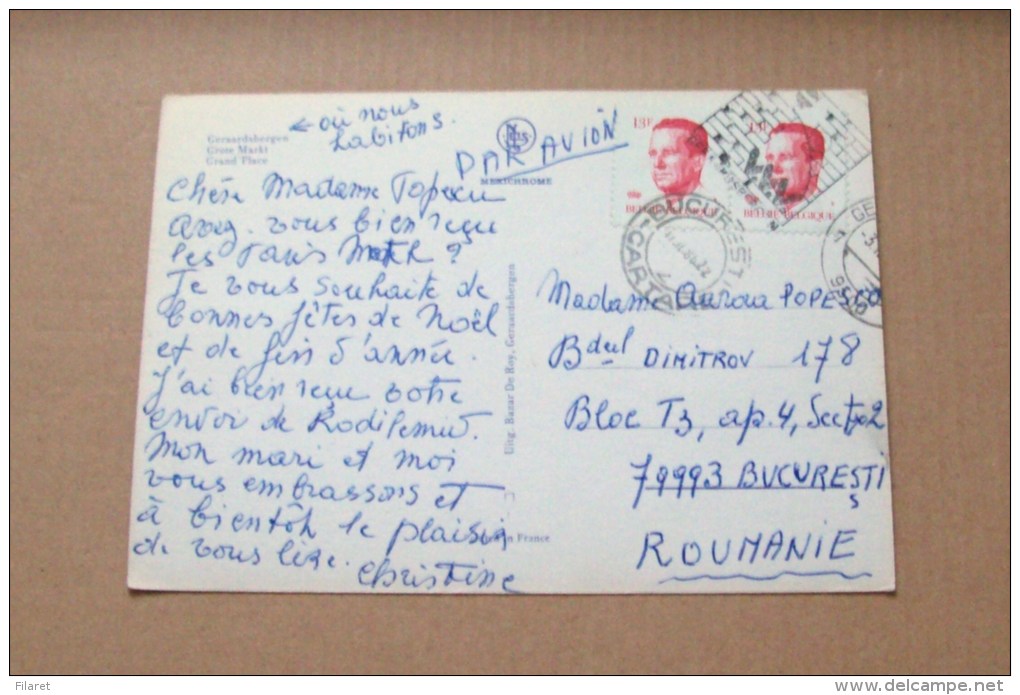 ← où nous
habitons.
Geraardsbergen
Grote Markt
Grand Place
NELS
MEXICHROME
PAR AVION
13F
13F
BELGIE-BELGIQUE
BELGIE-BELGIQUE
BUCUREȘTI
CARTA
Chère Madame Popescu
avez-vous bien reçu
les Paris Match ?
Je vous souhaite de
bonnes fêtes de Noël
et de fin d'année.
J'ai bien reçu votre
envoi de Rodilemid.
Mon mari et moi
vous embrassons et
à bientôt le plaisir
de vous lire.
Christine
Uitg. Bazar De Roy, Geraardsbergen
in France
Madame Aurora POPESCO
Bdul DIMITROV 178
Bloc T3, ap.4, Sector 2
79993 BUCUREȘTI
ROUMANIE
Filaret
www.delcampe.net